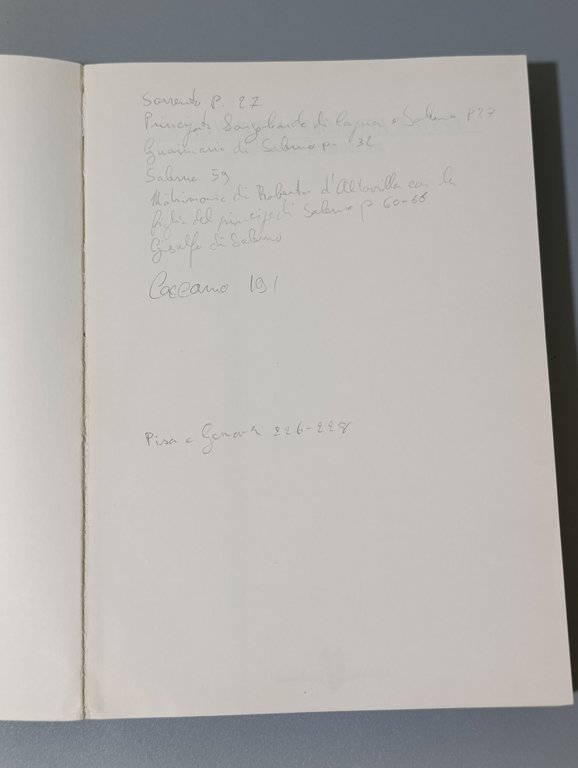 Sorrento p. 27
Principato Longobardo di Capua e Salerno p 27
Guaimario di Salerno p. 32
Salerno 59
Matrimonio di Roberto d'Altavilla con la
figlia del principe di Salerno p 60-66
Gisulfo di Salerno
Caccamo 191
Pisa e Genova 226-228